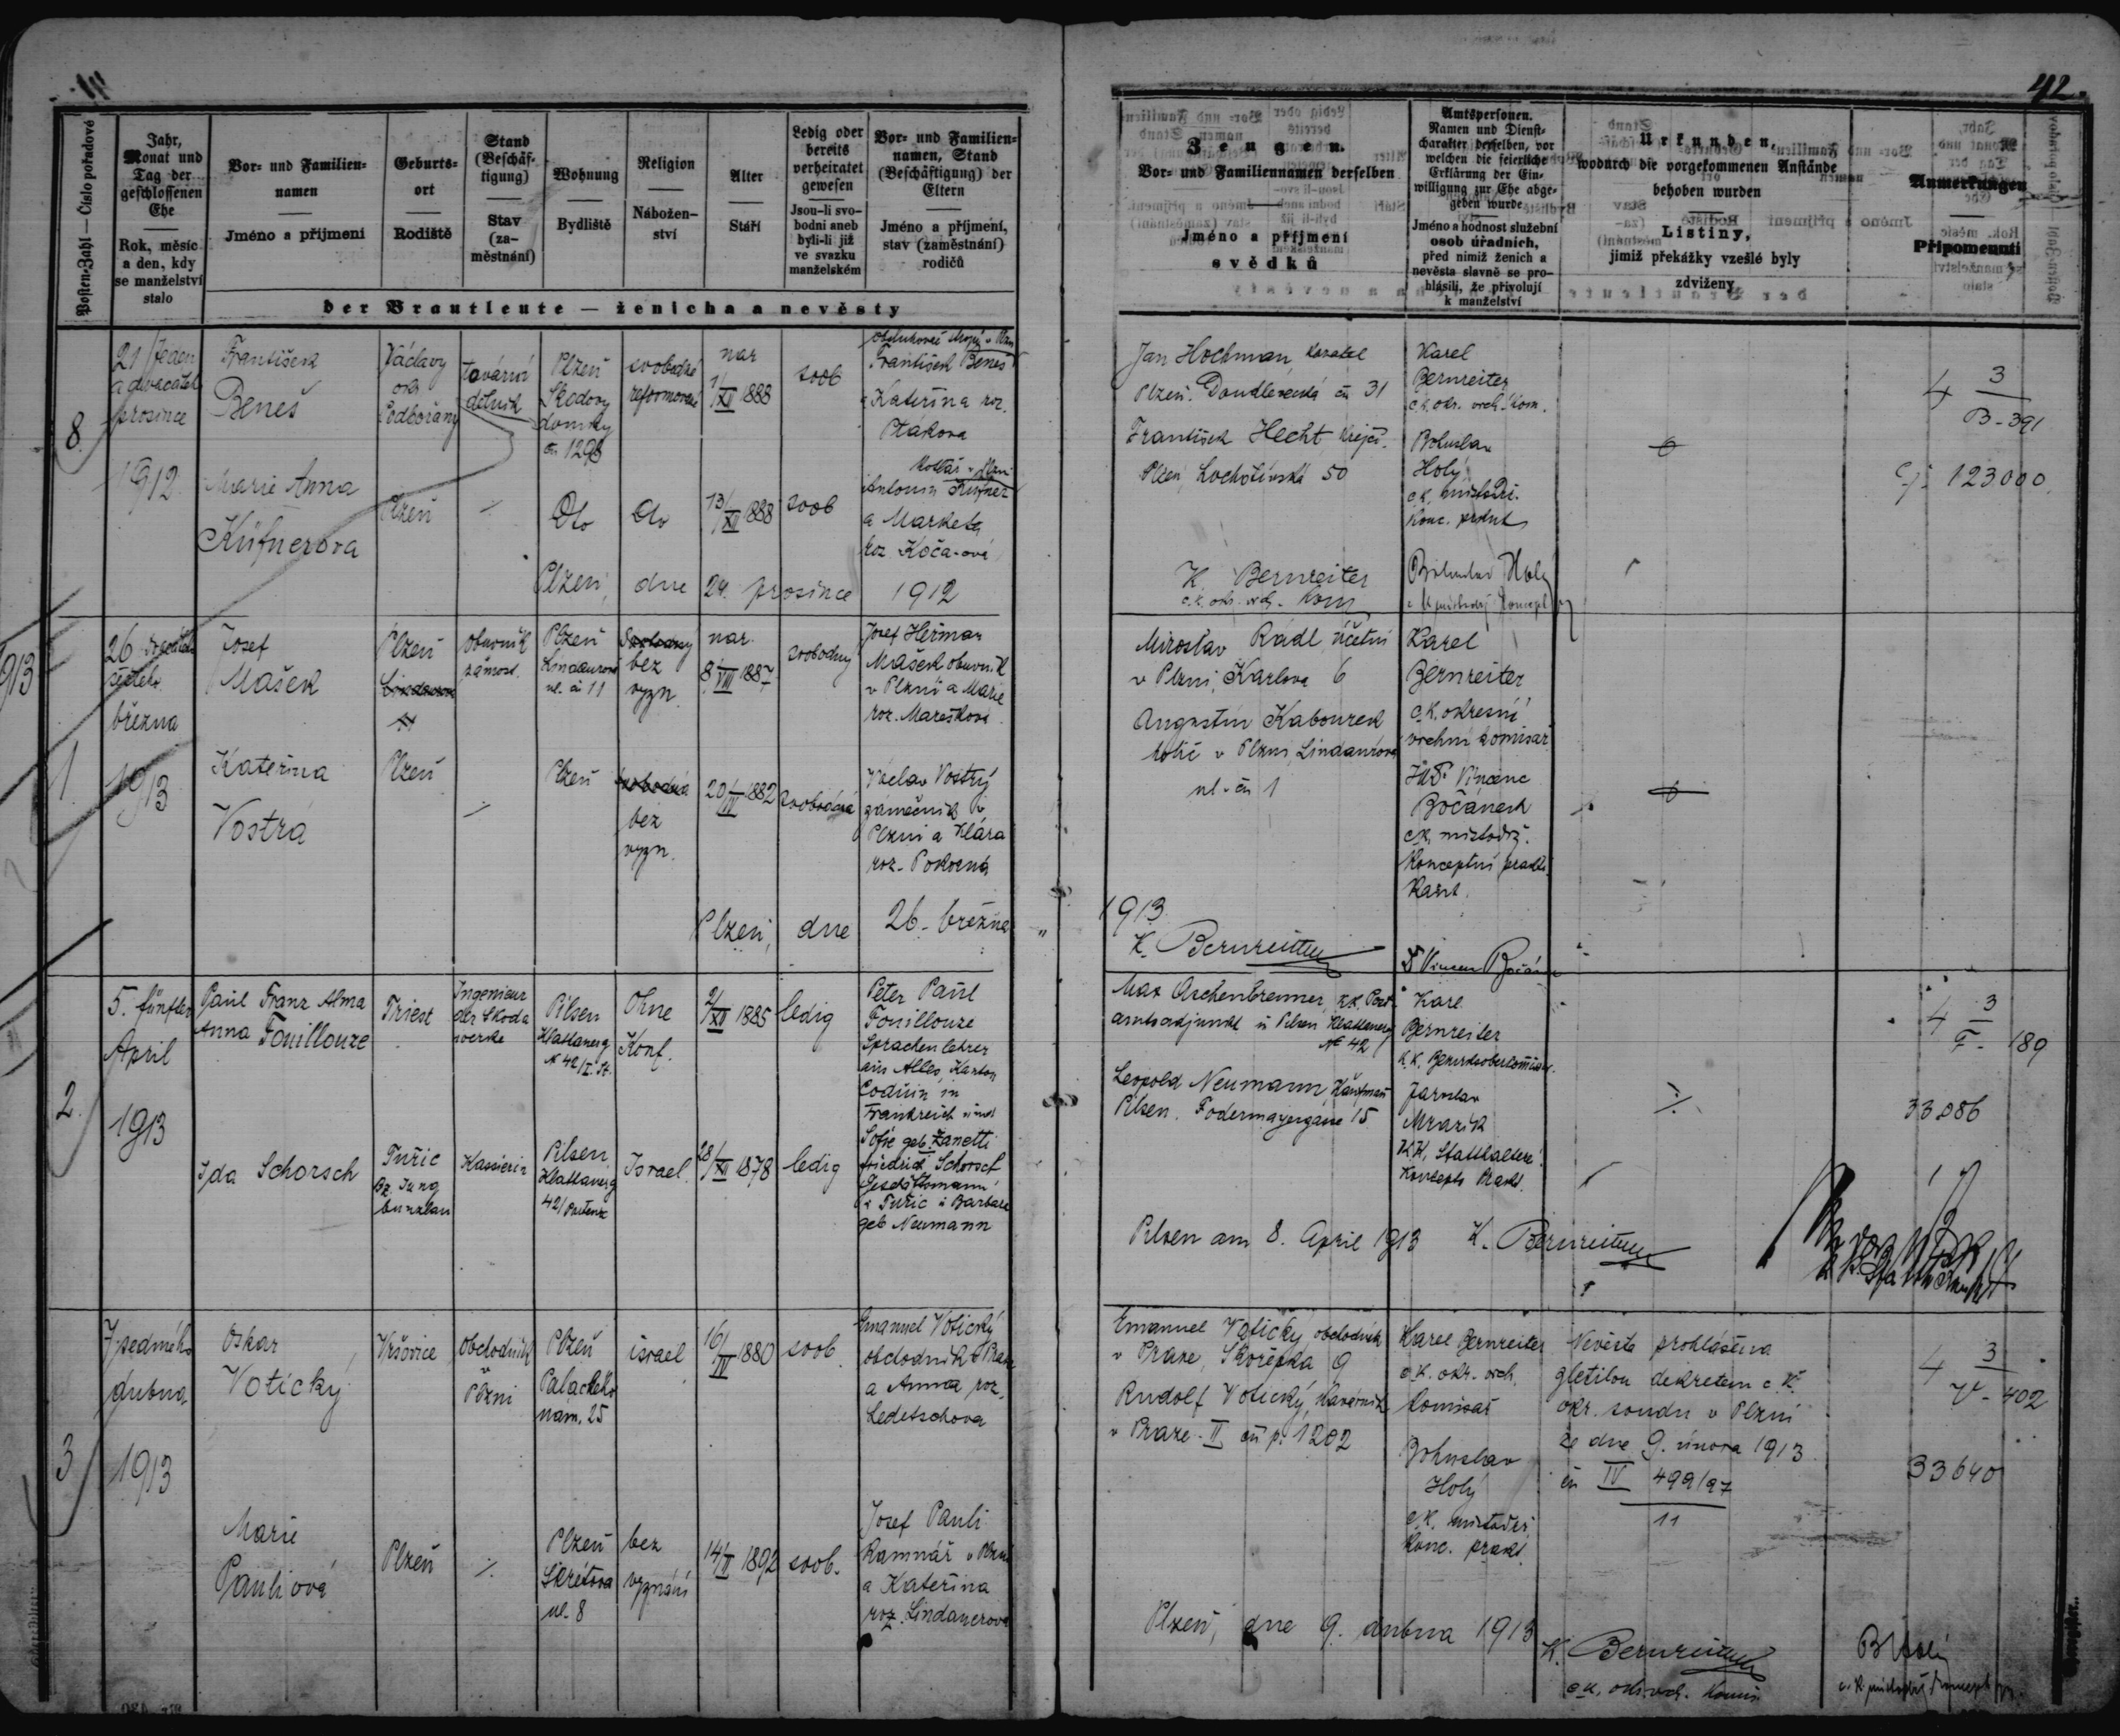 42.
Posten-Zahl — Číslo pořadové
Jahr,
Monat und
Tag der
geschlossenen
Ehe
Rok, měsíc
a den, kdy
se manželství
stalo
Vor- und Familien-
namen
Jméno a příjmení
Geburts-
ort
Rodiště
Stand
(Beschäf-
tigung)
Stav
(za-
městnání)
Wohnung
Bydliště
Religion
Nábožen-
ství
Alter
Stáří
Ledig oder
bereits
verheiratet
gewesen
Jsou-li svo-
bodni aneb
byli-li již
ve svazku
manželském
Vor- und Familien-
namen, Stand
(Beschäftigung) der
Eltern
Jméno a příjmení,
stav (zaměstnání)
rodičů
der Brautleute — ženicha a nevěsty
Zeugen.
Vor- und Familiennamen derselben
Jméno a příjmení
svědků
Amtspersonen.
Namen und Dienst-
charakter derselben, vor
welchen die feierliche
Erklärung der Ein-
willigung zur Ehe abge-
geben wurde
Jméno a hodnost služební
osob úřadních,
před nimiž ženich a
nevěsta slavně se pro-
hlásili, že přivolují
k manželství
Urkunden,
wodurch die vorgekommenen Anstände
behoben wurden
Listiny,
jimiž překážky vzešlé byly
zdviženy
Anmerkungen
Připomenutí
8.
21/jeden
a dvacátého
prosince
1912
František
Beneš
Václavy
okr.
Podbořany
tovární
dělník
Plzeň
Škodovy
domky
čís 1296
svobodné
reformované
nar
1/XII 1888
svob
František Beneš
a Kateřina roz.
Ptákova
Marie Anna
Küfnerova
Plzeň
Dto
dto
13/XII 1888
svob
Antonín Küfner
a Marketa
roz Koča-ová
Plzeň, dne 24. prosince 1912
Jan Hochman
Plzeň. Doudlevecká čís 31
František Hecht krejčí.
Plzeň, Lochotínská 50
Karel
Bernreiter
c.k. okr. vrch. kom.
Bohuslav
Holý
c.k. místodr.
konc. prakt
4 3
B-391
čj. 123.000
K. Bernreiter
c.k. okr. vrch. kom
Bohuslav Holý
1913
1.
26 dvacátého
šestého
března
1913
Josef
Mašek
Plzeň
obuvník
zámost.
Plzeň
Lindaurova
ul. čís 11
Svobodný
bez
vyzn.
nar.
8/VIII 1887
svobodný
Josef Heřman
Mašek obuvník
v Plzni a Marie
roz. Marešková
Kateřina
Vostrá
Plzeň
Plzeň
svobodná
bez
vyzn.
20/IV 1882
svobodná
Václav Vostrý
zámečník v
Plzni a Klára
roz. Pokorná
Plzeň, dne 26. března
1913
Miroslav Rádl, účetní
v Plzni, Karlova 6
Augustin Kabourek
holič v Plzni Lindaurova
ul. čís 1
Karel
Bernreiter
c.k. okresní
vrchní komisař
JUDr. Vincenc
Bočánek
c.k. místodrž.
konceptní prakti-
kant.
K. Bernreiter
Dr Vincenc Bočánek
2.
5. fünfter
April
1913
Paul Franz Alma
Anna Fouillouze
Triest
Ingenieur
der Skoda
werke
Pilsen
Klattauerg
№ 42/I. St.
Ohne
Konf.
2/XII 1885
ledig
Peter Paul
Fouillouze
Sprachenlehrer
aus Alles, Kanton
in
Frankreich und
Sofie geb. Zanetti
Ida Schorsch
Tuřic
Bz. Jung
bunzlau
Kassierin
Pilsen
Klattauerg
42/
Israel.
28/XII 1878
ledig
Friedrich Schorsch
Geschäftsmann
in Tuřic u Barbara
geb Neumann
Max Aschenbrenner, k.k. Post-
amtsadjunkt in Pilsen Klattauerg
№ 42
Leopold Neumann, Kaufmann
Pilsen. Fodermayergasse 15
Karl
Bernreiter
K.K. Bezirksoberkommissär.
Jaroslav
Mrazik
K.K. Statthalterei
Konzepts Prakt.
4 3
F-189
33.086
Pilsen am 8. April 1913 K. Bernreiter
3
7 sedmého
dubna
1913
Oskar
Votický
Vršovice
Obchodník
v
Plzni
Plzeň
Palackého
nám. 25
israel
16/IV 1880
svob.
Emanuel Votický
obchodník v Praze
a Anna roz.
Ledetschova
Marie
Pauliová
Plzeň
Plzeň
Skrétova
ul. 8
bez
vyznání
1892
svob.
Josef Pauli
kamnář v Plzni
a Kateřina
roz. Lindauerova
Emanuel Votický, obchodník
v Praze, Skořepka 9
Rudolf Votický, kavárník
v Praze-II čís p. 1202
Karel Bernreiter
c.k. okr. vrch.
komisař
Bohuslav
Holý
c.k. místodrž.
konc. prakt.
Nevěsta prohlášena
zletilou dekretem c.k.
okr. soudu v Plzni
ze dne 9. února 1913
čís IV 499/97
11
4 3
V-402
33640
Plzeň, dne 9. dubna 1913
K. Bernreiter
c.k. okr. vrch. komis.
B Holý